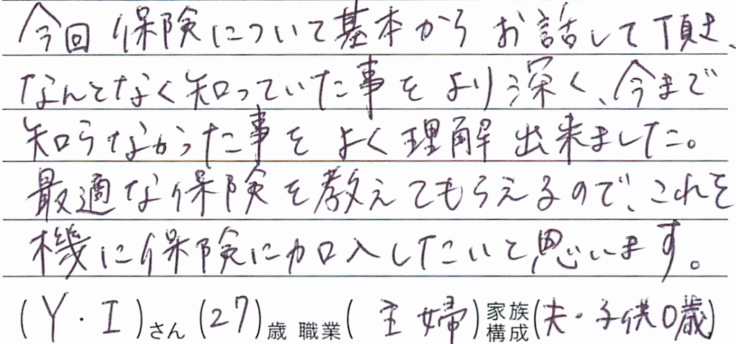 今回保険について基本からお話して頂き、
なんとなく知っていた事をより深く、今まで
知らなかった事をよく理解出来ました。
最適な保険を教えてもらえるので、これを
機に保険に加入したいと思います。
(Y・I)さん(27)歳 職業(主婦)家族構成(夫・子供0歳)